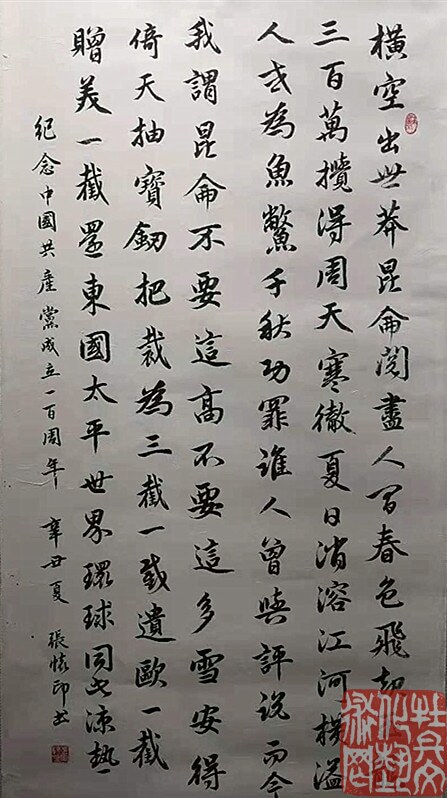 橫空出世莽昆侖閱盡人間春色飛起
三百萬攪得周天寒徹夏日消溶江河橫溢
人或為魚鱉千秋功罪誰人曾與評說而今
我謂昆侖不要這高不要這多雪安得
倚天抽寶劍把裁為三截一截遺歐一截
贈美一截還東國太平世界環球同此涼熱
紀念中國共產黨成立一百周年 辛丑夏 張印书